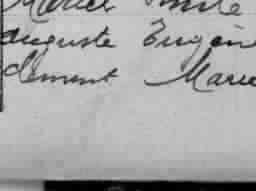 Marcel Emile
Auguste Eugèn
Clement Marie